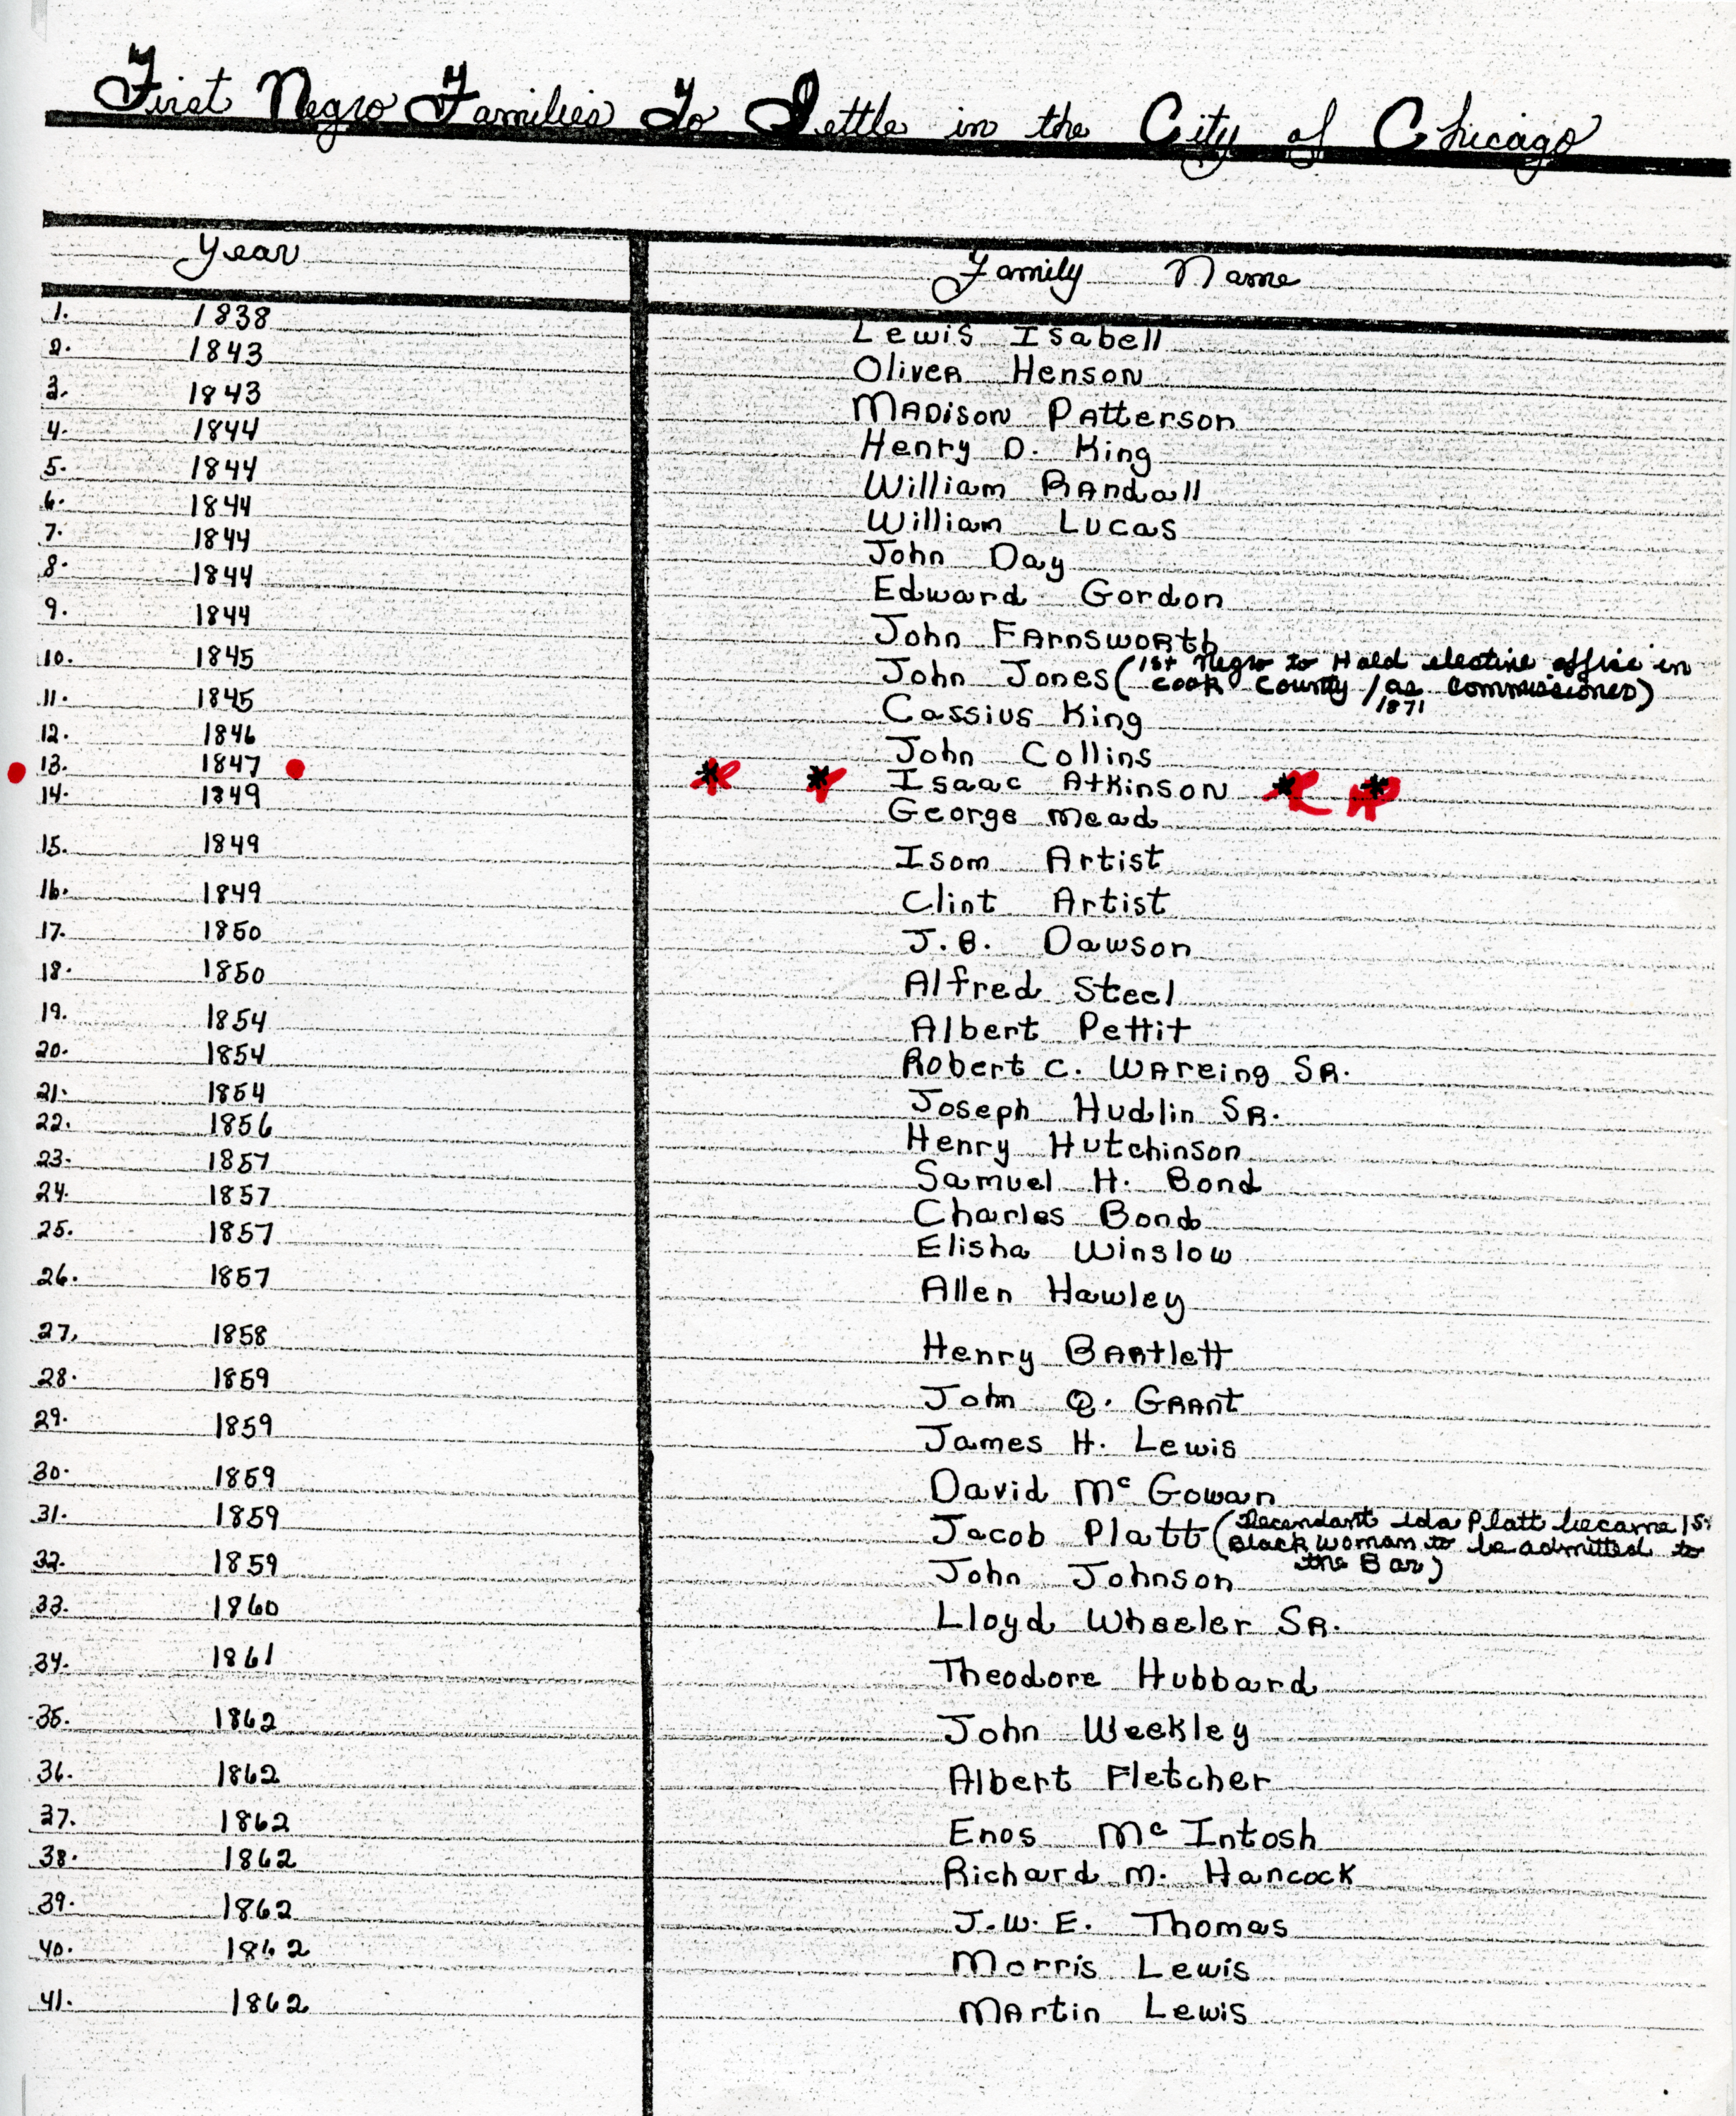 First Negro Families To Settle in the City of Chicago
Year Family Name
1. 1838 Lewis Isabell
2. 1843 Oliver Henson
3. 1843 Madison Patterson
4. 1844 Henry D. King
5. 1844 William Randall
6. 1844 William Lucas
7. 1844 John Day
8. 1844 Edward Gordon
9. 1844 John Farnsworth
10. 1845 John Jones (1st Negro to Hold elective office in
Cook County / as Commissioner)
1871
11. 1845 Cassius King
12. 1846 John Collins
13. 1847 * * Isaac Atkinson * *
14. 1849 George Mead
15. 1849 Isom Artist
16. 1849 Clint Artist
17. 1850 J.B. Dawson
18. 1850 Alfred Steel
19. 1854 Albert Pettit
20. 1854 Robert C. Wareing Sr.
21. 1854 Joseph Hudlin Sr.
22. 1856 Henry Hutchinson
23. 1857 Samuel H. Bond
24. 1857 Charles Bond
25. 1857 Elisha Winslow
26. 1857 Allen Hawley
27. 1858 Henry Bartlett
28. 1859 John Q. Grant
29. 1859 James H. Lewis
30. 1859 David Mc Gowan
31. 1859 Jacob Platt (Decendant Ida Platt became 1st
Black woman to be admitted to
the Bar)
32. 1859 John Johnson
33. 1860 Lloyd Wheeler Sr.
34. 1861 Theodore Hubbard
35. 1862 John Weekley
36. 1862 Albert Fletcher
37. 1862 Enos Mc Intosh
38. 1862 Richard M. Hancock
39. 1862 J.W.E. Thomas
40. 1862 Morris Lewis
41. 1862 Martin Lewis